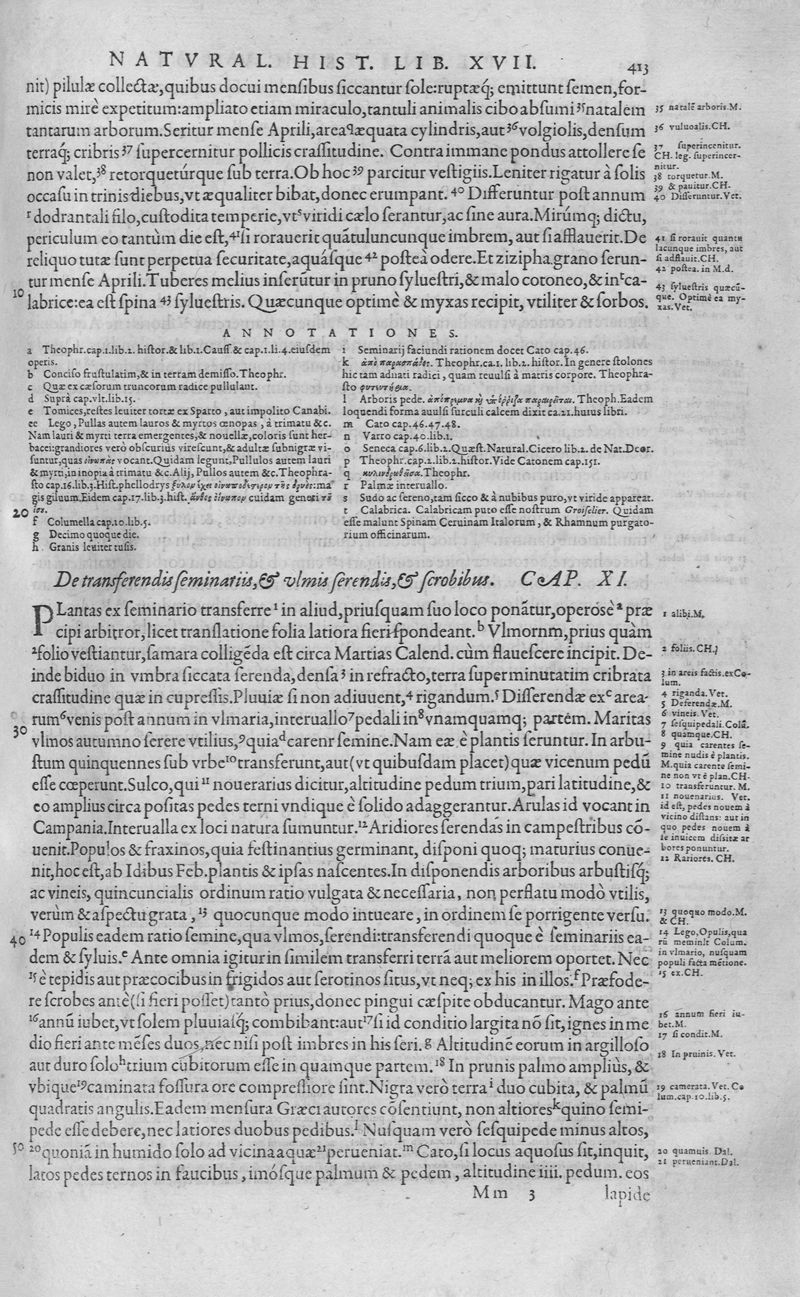 NATVRAL. HIST. LIB. XVII. 413
nit) pilulæ collectæ,quibus docui mensibus siccantur sole:ruptæq; emittunt semen,for-
micis mirè expetitum:ampliato etiam miraculo,tantuli animalis cibo absumi ³⁵natalem
tantarum arborum.Seritur mense Aprili,area æquata cylindris,aut ³⁶volgiolis,densum
terraq; cribris ³⁷ supercernitur pollicis crassitudine. Contra immane pondus attollere se
non valet,³⁸ retorqueturque sub terra.Ob hoc ³⁹ parcitur vestigiis.Leniter rigatur à solis
occasu in trinis diebus,vt æqualiter bibat,donec erumpant. ⁴⁰ Differuntur post annum
ʳ dodrantali filo,custodita temperie,vt ˢ viridi cælo serantur,ac sine aura.Mirúmq; dictu,
periculum eo tantùm die est,⁴¹si rorauerit quãtuluncunque imbrem, aut si afflauerit.De
reliquo tutæ sunt perpetua securitate,aquásque ⁴² posteà odere.Et zizipha grano serun-
tur mense Aprili.Tuberes melius inserũtur in pruno syluestri,& malo cotoneo,& in ᵗca-
10 labrice:ea est spina ⁴³ syluestris. Quæcunque optimè & myxas recipit, vtiliter & sorbos.
35 natalẽ arboris.M.
36 vuluoalis.CH.
37 superincenitur.
CH. leg. superincer-
nitur.
38 torquetur.M.
39 & pauitur.CH.
40 Differuntur.Vet.
41 si rorauit quantu
lacunque imbres, aut
si adflauit.CH.
42 postea. in M.d.
43 syluestris quæcũ-
que. Optimè ea my-
xas.Vet.
ANNOTATIONES.
a Theophr.cap.1.lib.2. histor.& lib.1.Causs & cap.1.li.4.eiusdem
operis.
b Conciso frustulatim,& in terram demisso.Theophr.
c Quæ ex cæsorum truncorum radice pullulant.
d Suprà cap.vlt.lib.15.
e Tomices,restes leuiter tortæ ex Sparto , aut impolito Canabi.
ee Lego ,Pullas autem lauros & myrtos œnopas , à trimatu &c.
Nam lauri & myrti terra emergentes,& nouellæ,coloris sunt her-
bacei:grandiores verò obscuriùs virescunt,& adultæ subnigræ vi-
suntur,quas οἰνωπὰς vocant.Quidam legunt,Pullulos autem lauri
& myrti,in inopia à trimatu &c.Alij, Pullos autem &c.Theophra-
sto cap.16.lib.3.Hist.phellodrys ξύλον ἔχει οἰνωποδέστερον τῆς δρυὸς:ma
gis giluum.Eidem cap.17.lib.3.hist. cuidam generi
20
f Columella cap.10.lib.5.
g Decimo quoque die.
h Granis leuiter tusis.
i Seminarij faciundi rationem docet Cato cap.46.
k ἀπὸ παρασπάδος. Theophr.ca.1. lib.2. histor.In genere stolones
hic tam adnati radici , quam reuulsi à matris corpore. Theophra-
sto φυτευτήρια.
l Arboris pede. Theoph.Eadem
loquendi forma auulsi surculi calcem dixit ca.21.huius libri.
m Cato cap.46.47.48.
n Varro cap.40.lib.1.
o Seneca cap.6.lib.2.Quæst.Natural.Cicero lib.2. de Nat.Deor.
p Theophr.cap.2.lib.2.histor.Vide Catonem cap.151.
q Theophr.
r Palmæ interuallo.
s Sudo ac sereno,tam sicco & à nubibus puro,vt viride appareat.
t Calabrica. Calabricam puto esse nostrum Groiselier. Quidam
esse malunt Spinam Ceruinam Italorum , & Rhamnum purgato-
rium officinarum.
De transferendis seminariis,& vlmis serendis,& scrobibus. CAP. XI.
PLantas ex seminario transferre ¹ in aliud,priusquam suo loco ponãtur,operosè ᵃ præ
cipi arbitror,licet translatione folia latiora fieri spondeant. ᵇ Vlmorum,prius quàm
²folio vestiantur,samara colligẽda est circa Martias Calend. cùm flauescere incipit. De-
inde biduo in vmbra siccata serenda,densa ³ in refracto,terra super minutatim cribrata
crassitudine quæ in cupressis.Pluuiæ si non adiuuent,⁴ rigandum.⁵ Differendæ ex ᶜ area-
rum ⁶venis post annum in vlmaria,interuallo ⁷pedali in ⁸vnamquamq; partem. Maritas
30 vlmos autumno serere vtilius,⁹quia ᵈcarent semine.Nam eæ è plantis seruntur. In arbu-
stum quinquennes sub vrbe ¹⁰transferunt,aut(vt quibusdam placet)quæ vicenum pedũ
esse cœperunt.Sulco,qui ¹¹ nouerarius dicitur,altitudine pedum trium,pari latitudine,&
eo amplius circa positas pedes terni vndique è solido adaggerantur.Arulas id vocant in
Campania.Interualla ex loci natura sumuntur.¹²Aridiores serendas in campestribus cõ-
uenit.Populos & fraxinos,quia festinantius germinant, disponi quoq; maturius conue-
nit,hoc est,ab Idibus Feb.plantis & ipsas nascentes.In disponendis arboribus arbustisq;
ac vineis, quincuncialis ordinum ratio vulgata & necessaria, non perflatu modò vtilis,
verùm & aspectu grata , ¹³ quocunque modo intueare, in ordinem se porrigente versu.
40 ¹⁴Populis eadem ratio semine,qua vlmos,serendi:transferendi quoque è seminariis ea-
dem & syluis.ᵉ Ante omnia igitur in similem transferri terrã aut meliorem oportet. Nec
¹⁵ è tepidis aut præcocibus in frigidos aut serotinos situs,vt neq; ex his in illos.ᶠ Præfode-
re scrobes antè(si fieri posset)tantò prius,donec pingui cæspite obducantur. Mago ante
¹⁶annũ iubet,vt solem pluuiasq; combibant:aut ¹⁷si id conditio largita nõ sit,ignes in me
dio fieri ante mẽses duos,nec nisi post imbres in his seri.ᵍ Altitudinẽ eorum in argilloso
aut duro solo ʰtrium cubitorum esse in quamque partem.¹⁸ In prunis palmo ampliùs, &
vbique ¹⁹caminata fossura ore compressiore sint.Nigra verò terra ⁱ duo cubita, & palmũ
quadratis angulis.Eadem mensura Græci autores cõsentiunt, non altiores ᵏquino semi-
pede esse debere,nec latiores duobus pedibus.ˡ Nusquam verò sesquipede minus altos,
50 ²⁰quoniã in humido solo ad vicina aquæ ²¹perueniat.ᵐ Cato,si locus aquosus sit,inquit,
latos pedes ternos in faucibus , imósque palmum & pedem , altitudine iiii. pedum. eos
Mm 3 lapide
1 alibi.M.
2 foliis.CH.
3 in areis factis.ex Co-
lum.
4 riganda.Vet.
5 Deferendæ.M.
6 vineis. Vet.
7 sesquipedali.Colũ.
8 quamque.CH.
9 quia carentes se-
mine nudis è plantis.
M.quia carente semi-
ne non vt è plan.CH-
10 transferuntur. M.
11 nouenarius. Vet.
id est, pedes nouem à
vicino distans: aut in
quo pedes nouem à
se inuicem dissitæ ar
bores ponuntur.
12 Rariores. CH.
13 quoquo modo.M.
& CH.
14 Lego,Opulis,qua
rũ meminit Colum.
in vlmario, nusquam
populi facta mẽtione.
15 ex.CH.
16 annum fieri iu-
bet.M.
17 si condit.M.
18 In pruinis. Vet.
19 camerata.Vet. Co
lum.cap.10.lib.5.
20 quamuis. Dal.
21 perueniant.Dal.